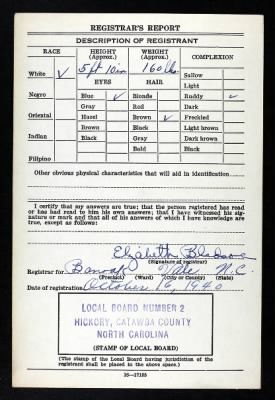 REGISTRAR'S REPORT
DESCRIPTION OF REGISTRANT
RACE HEIGHT (Approx.) WEIGHT (Approx.) COMPLEXION
White ✓ 5 ft 10 in 160 lbs. Sallow
Light
EYES HAIR
Negro Blue ✓ Blonde Ruddy ✓
Gray Red Dark
Oriental Hazel Brown ✓ Freckled
Brown Black Light brown
Indian Black Gray Dark brown
Bald Black
Filipino
Other obvious physical characteristics that will aid in identification
I certify that my answers are true; that the person registered has read
or has had read to him his own answers; that I have witnessed his signa-
ture or mark and that all of his answers of which I have knowledge are
true, except as follows:
Elizabeth
(Signature of registrar)
Registrar for N.C.
(Precinct) (Ward) (City or County) (State)
Date of registration October 16, 1940
LOCAL BOARD NUMBER 2
HICKORY, CATAWBA COUNTY
NORTH CAROLINA
(STAMP OF LOCAL BOARD)
(The stamp of the Local Board having jurisdiction of the registrant
shall be placed in the above space.)
16-17105